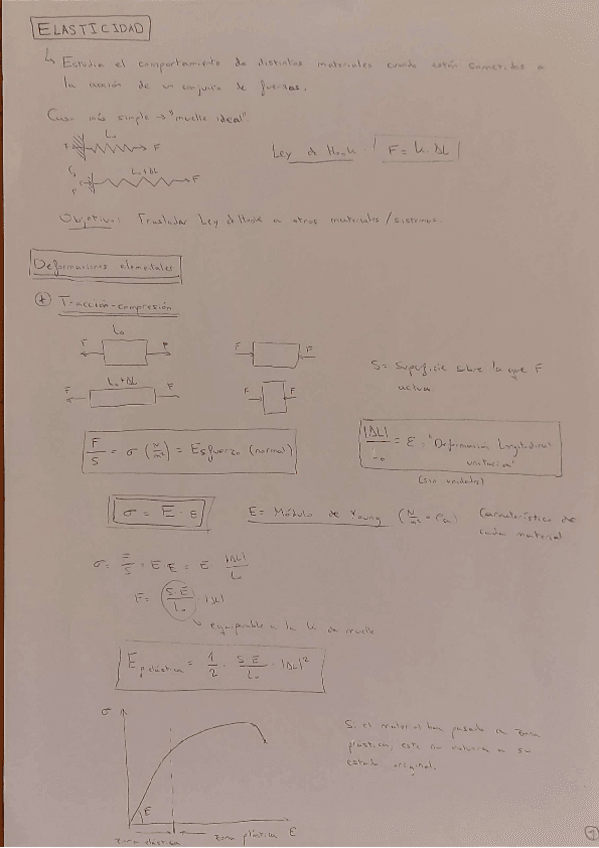 ELASTICIDAD
↳ Estudia el comportamiento de distintos materiales cuando están sometidos a
la acción de un conjunto de fuerzas.
Caso más simple → "muelle ideal"
L₀
F F
Ley de Hooke: F = k · ΔL
L₀+ΔL
F F
Objetivo: Trasladar Ley d Hooke a otros materiales/sistemas.
Deformaciones elementales
* Tracción-compresión
L₀
F F F F
S = Superficie sobre la que F
actua
L₀+ΔL
F F F F
F/S = σ (N/m²) = Esfuerzo (normal)
|ΔL|/L₀ = ε = "Deformación longitudinal
unitaria"
(sin unidades)
σ = E · ε
E = Módulo de Young (N/m² = Pa) Característico de
cada material
σ = F/S = E · ε = E |ΔL|/L₀
F = (S·E/L₀) · |ΔL|
equiparable a la k de muelle
E p elástica = 1/2 · S·E/L₀ · |ΔL|²
σ
Si el material ha pasado a zona
plástica, este no volverá a su
estado original.
E
zona elástica zona plástica ε
1